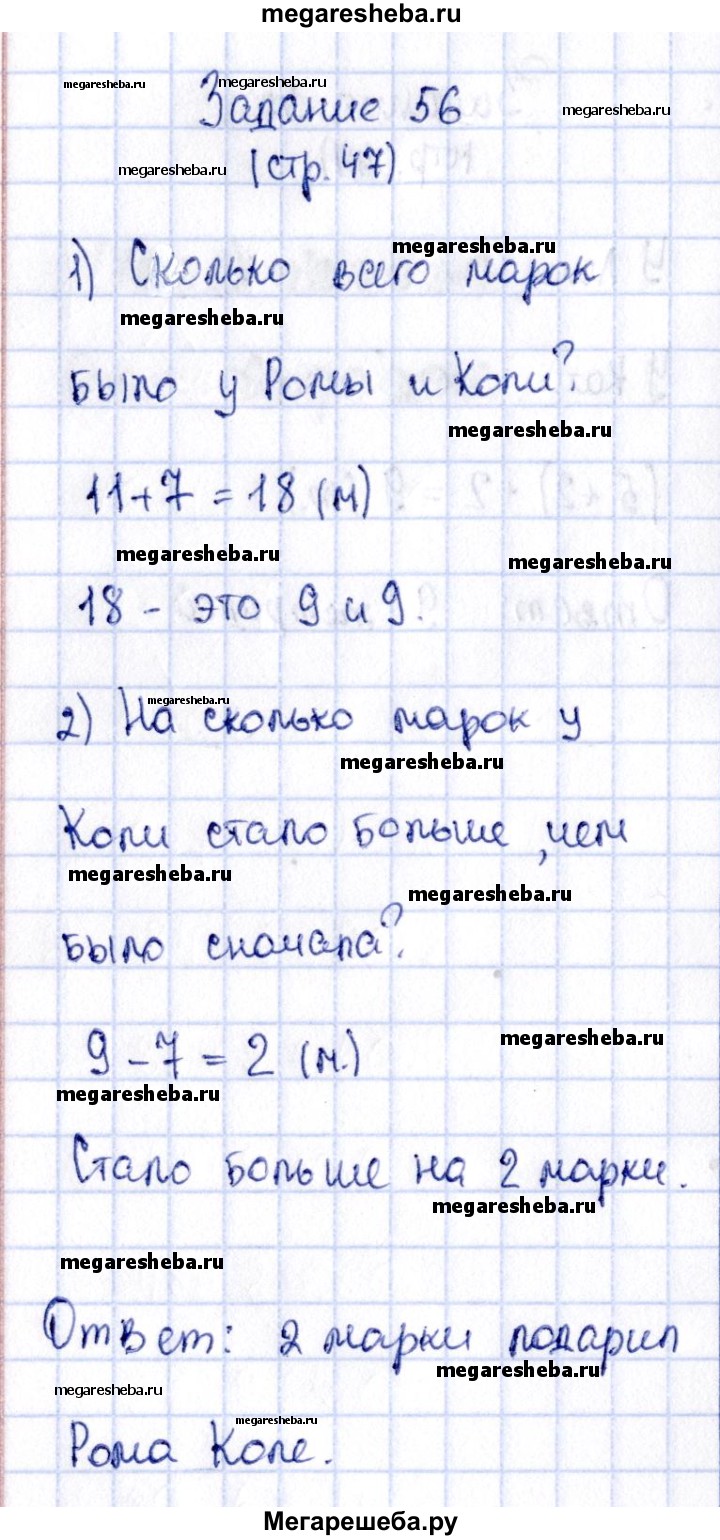 megaresheba.ru
megaresheba.ru megaresheba.ru
Задание 56
megaresheba.ru
megaresheba.ru
(стр. 47)
megaresheba.ru
1) Сколько всего марок
megaresheba.ru
было у Ромы и Коли?
megaresheba.ru
11+7=18 (м)
megaresheba.ru
megaresheba.ru
18 - это 9 и 9.
megaresheba.ru
2) На сколько марок у
megaresheba.ru
Коли стало больше, чем
megaresheba.ru
megaresheba.ru
было сначала?
9-7=2 (м.)
megaresheba.ru
megaresheba.ru
Стало больше на 2 марки.
megaresheba.ru
megaresheba.ru
Ответ: 2 марки подарил
megaresheba.ru
megaresheba.ru
megaresheba.ru
Рома Коле.
Мегарешеба.ру